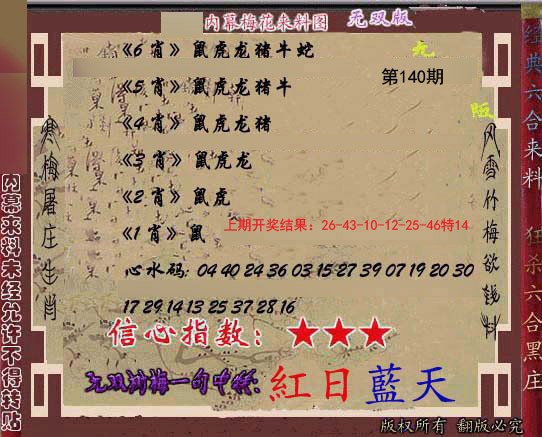 内幕梅花来料图 无双版
《6 肖》鼠虎龙猪牛蛇
无
第140期
《5 肖》鼠虎龙猪牛
《4 肖》鼠虎龙猪
《3 肖》鼠虎龙
《2 肖》鼠虎
《1 肖》鼠
上期开奖结果：26-43-10-12-25-46特14
心水码: 04 40 24 36 03 15 27 39 07 19 20 30
17 29 14 13 25 37 28 16
信心指数：★★★
一句中特:
紅日藍天
版权所有 翻版必究
寒梅屠庄生肖
内幕来料未经允许不得转贴
风雪竹梅欲钱料
经典六合来料
狂杀六合黑庄